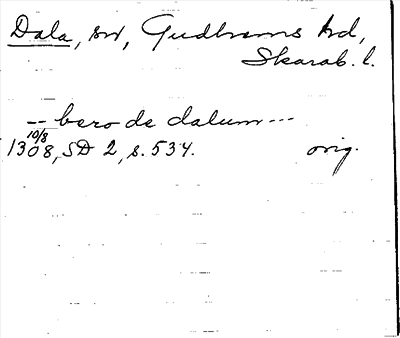 Dala, sn, Gudhems hd,
Skarab. l.
-- bero de dalum ---
10/8
1308, SD 2, s. 534. orig.